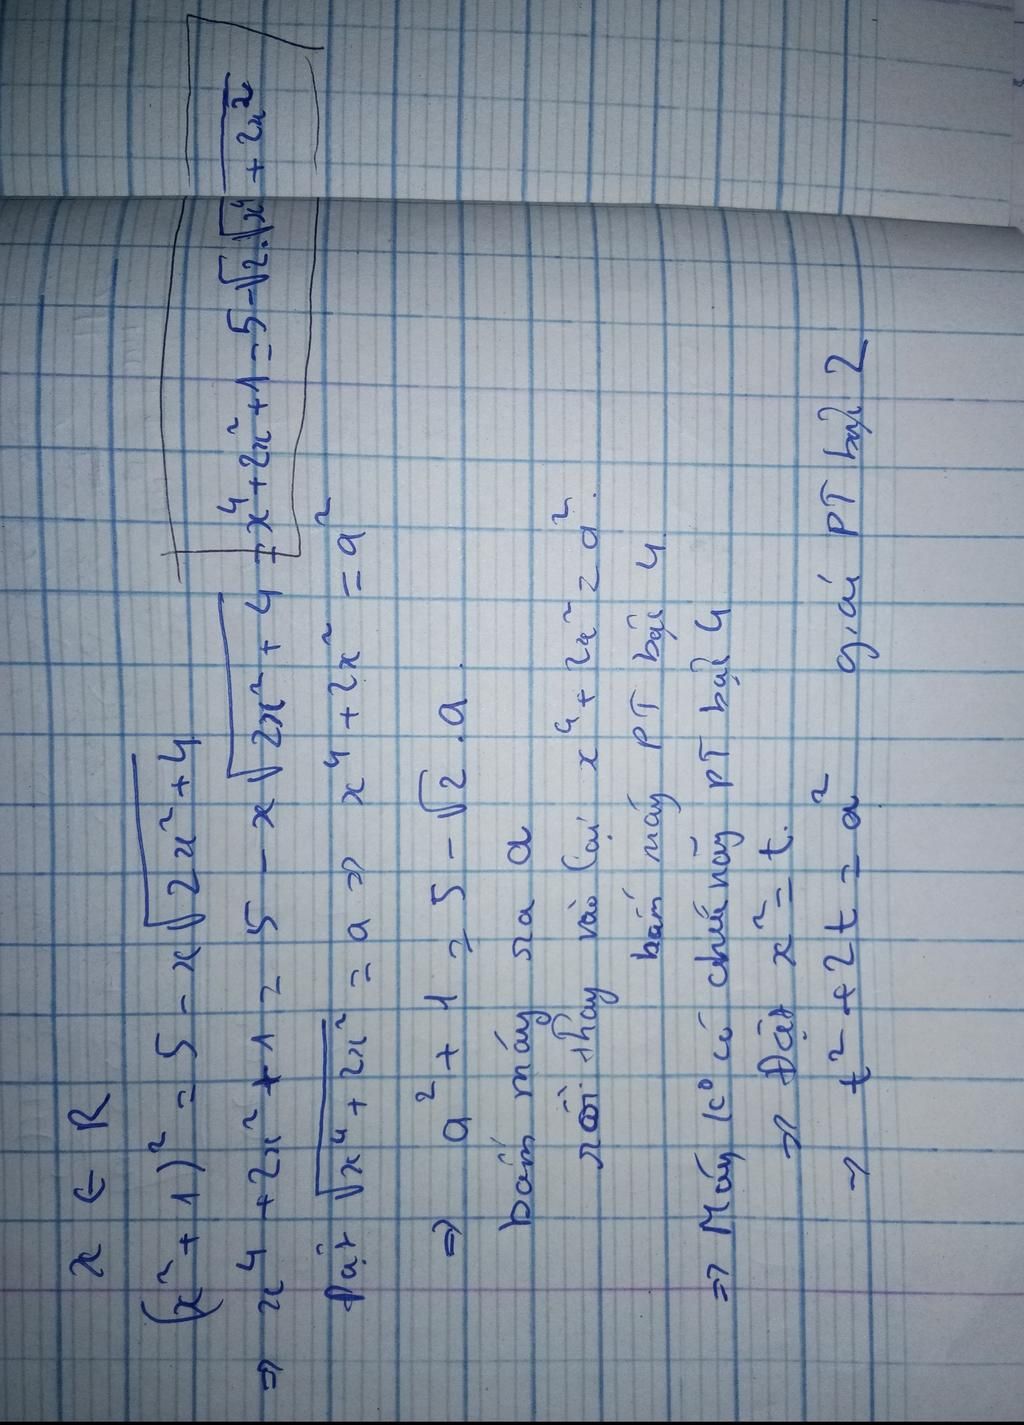 x ∈ R
(x² + 1)² = 5 - x√(2x² + 4)
⇒ x⁴ + 2x² + 1 = 5 - x√(2x² + 4) = x⁴ + 2x² + 1 = 5 - √2.√(x⁴ + 2x²)
Đặt √(x⁴ + 2x²) = a ⇒ x⁴ + 2x² = a²
⇒ a² + 1 = 5 - √2 . a.
bấm máy ra a
rồi thay vào lại x⁴ + 2x² = a².
bấm máy PT bậc 4
⇒ Máy k⁰ có chức năng PT bậc 4
⇒ Đặt x² = t.
⇒ t² + 2t = a² giải PT bậc 2